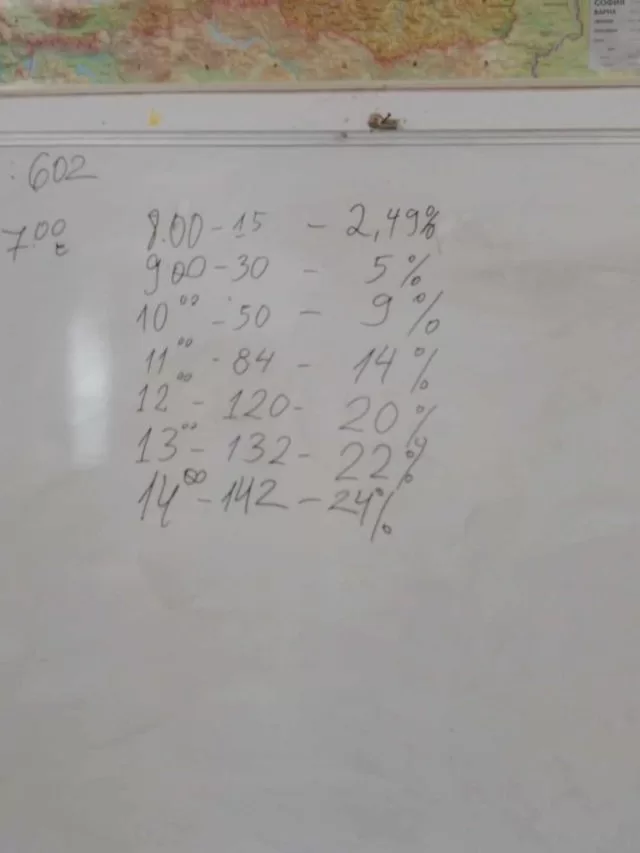 СОФИЯ
ВАРНА
: 602
7.00 ч
8.00 - 15 - 2,49%
9 00 - 30 - 5%
10 00 - 50 - 9%
11 00 - 84 - 14%
12 00 - 120 - 20%
13 00 - 132 - 22%
14 00 - 142 - 24%